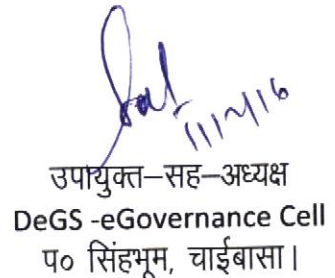 1/12/16
उपायुक्त–सह–अध्यक्ष
DeGS -eGovernance Cell
प० सिंहभूम, चाईबासा।